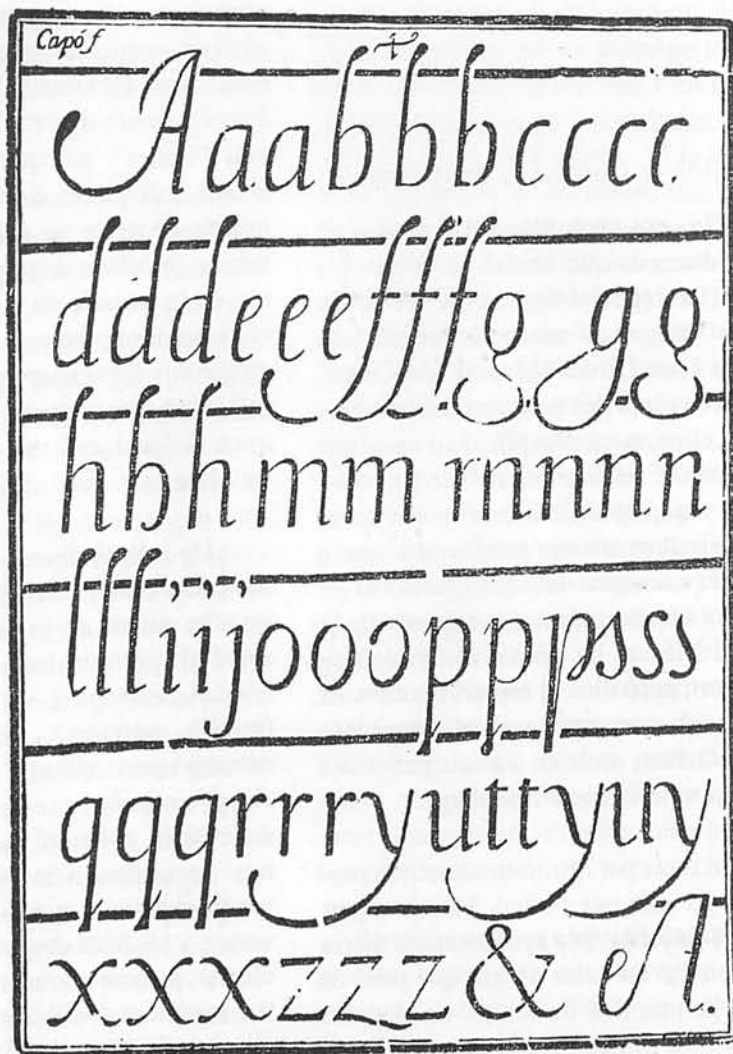 Capóſ
Aaabbbcccc
dddeeefffggg
hhhmmmnnnn
llllijjooopppssss
qqqrrryuttyuy
xxxzzz& el